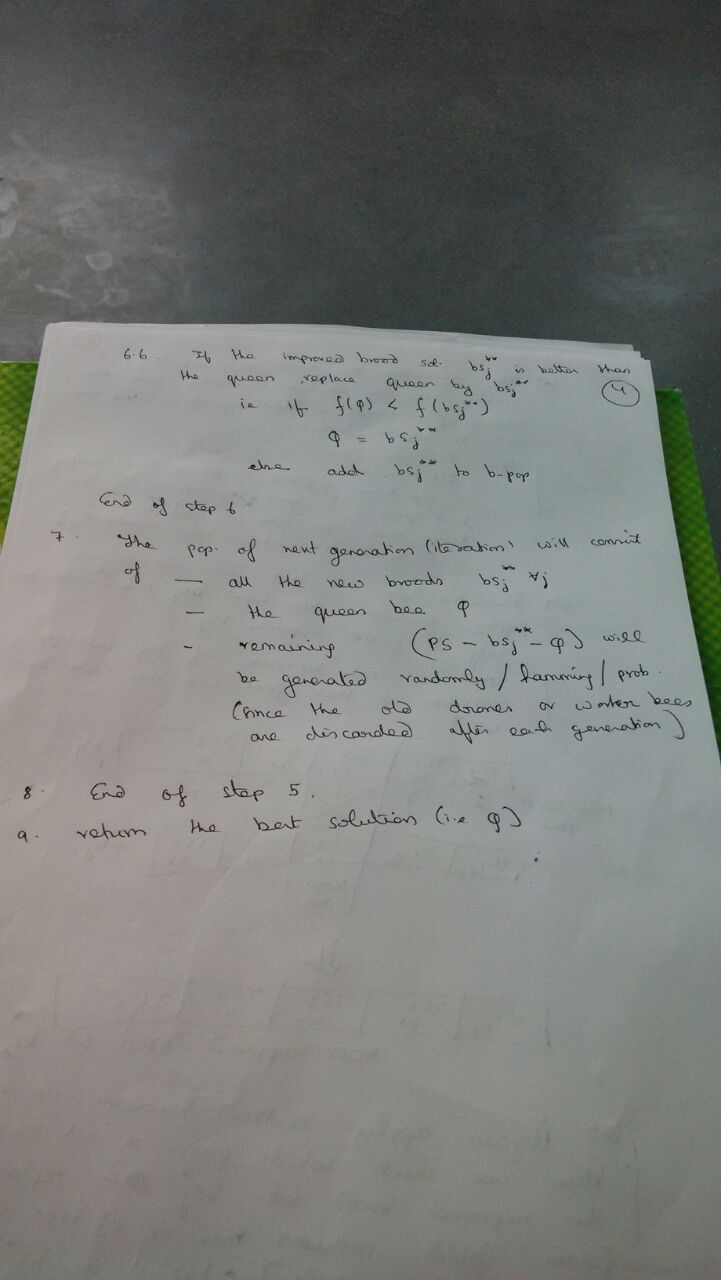 6.6. If the improved brood sol. bsj** is better than
the queen, replace queen by bsj**
④
ie if f(Q) < f(bsj**)
Q = bsj**
else add bsj** to b-pop
End of step 6
7. The pop. of next generation (iteration) will consist
of — all the new broods bsj** ∀j
— the queen bee Q
- remaining (PS – bsj** – Q) will
be generated randomly / hamming / prob.
(since the old drones or worker bees
are discarded after each generation)
8. End of step 5.
9. return the best solution (i.e Q)